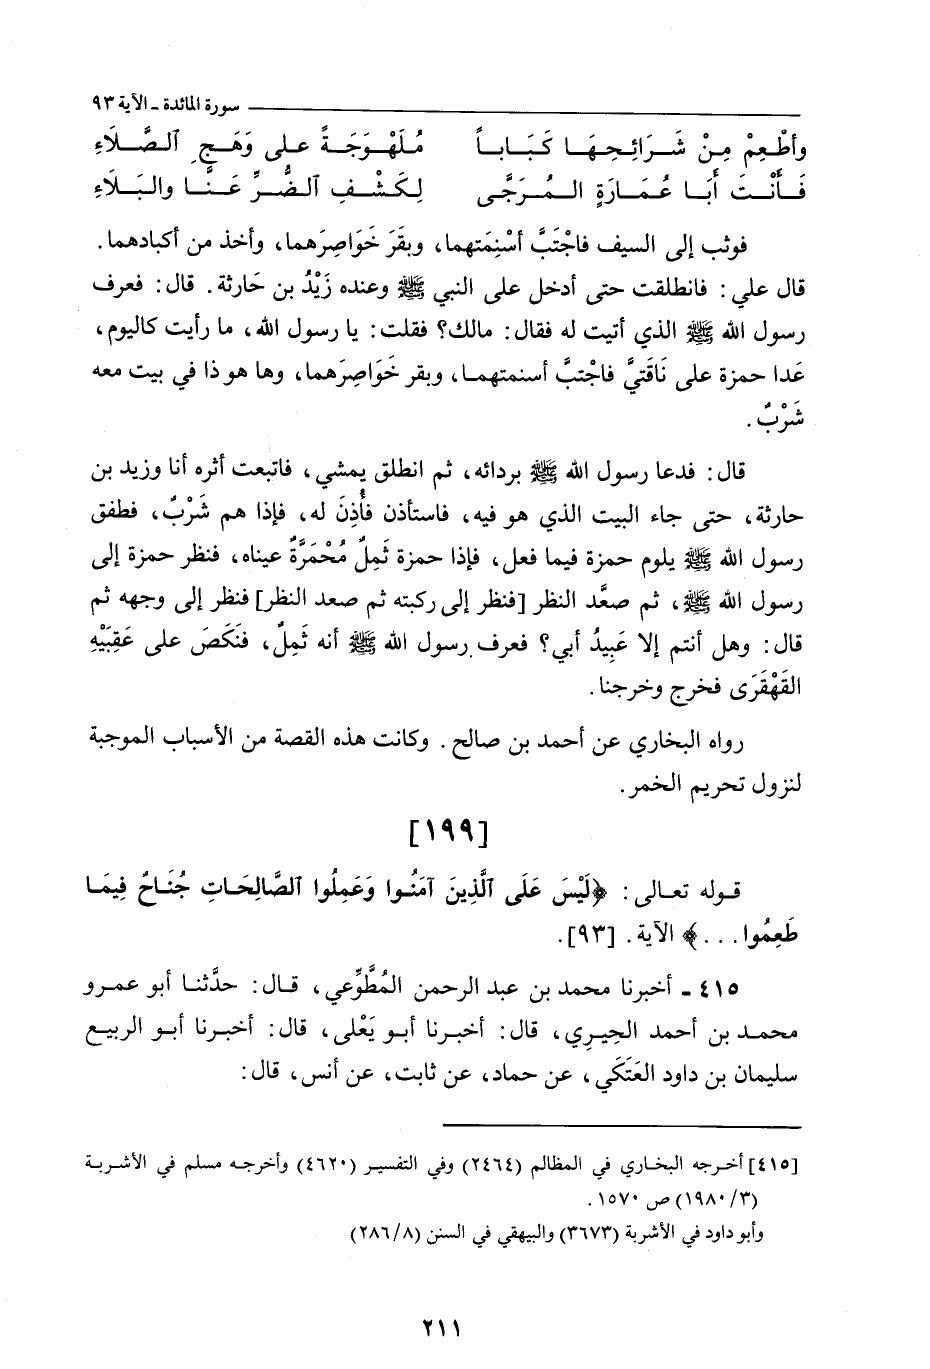 سورة المائدة ـ الآية ٩٣
وأطْعِمْ مِنْ شَرَائِحِهَا كَبَاباً مُلَهْوَجَةً على وَهَجِ ٱلصَّلَاءِ
فَأَنْتَ أَبَا عُمَارَةٍ المُرَجَّى لِكَشْفِ ٱلضُّرِّ عَنَّا والبَلَاءِ
فوثب إلى السيف فاجْتَبَّ أسْنِمَتهما، وبقَرَ خَوَاصِرَهما، وأخذ من أكبادهما.
قال علي: فانطلقت حتى أدخل على النبي ﷺ وعنده زَيْدُ بن حَارثة. قال: فعرف
رسول الله ﷺ الذي أتيت له فقال: مالك؟ فقلت: يا رسول الله، ما رأيت كاليوم،
عَدا حمزة على نَاقَتيَّ فاجْتبَّ أسنمتهما، وبقر خَوَاصِرَهما، وها هو ذا في بيت معه
شَرْبٌ.
قال: فدعا رسول الله ﷺ بردائه، ثم انطلق يمشي، فاتبعت أثره أنا وزيد بن
حارثة، حتى جاء البيت الذي هو فيه، فاستأذن فأُذِنَ له، فإذا هم شَرْبٌ، فطفق
رسول الله ﷺ يلوم حمزة فيما فعل، فإذا حمزة ثَمِلٌ مُحْمَرَّةٌ عيناه، فنظر حمزة إلى
رسول الله ﷺ، ثم صعَّد النظر [فنظر إلى ركبته ثم صعد النظر] فنظر إلى وجهه ثم
قال: وهل أنتم إلا عَبِيدُ أبي؟ فعرف رسول الله ﷺ أنه ثَمِلٌ، فنَكَصَ على عَقِبَيْهِ
القَهْقَرَى فخرج وخرجنا.
رواه البخاري عن أحمد بن صالح. وكانت هذه القصة من الأسباب الموجبة
لنزول تحريم الخمر.
[١٩٩]
قوله تعالى: ﴿لَيْسَ عَلَى ٱلَّذِينَ آمَنُوا وَعَمِلُوا ٱلصَّالِحَاتِ جُنَاحٌ فِيمَا
طَعِمُوا...﴾ الآية. [٩٣].
٤١٥ ـ أخبرنا محمد بن عبد الرحمن المُطَّوِّعي، قال: حدَّثنا أبو عمرو
محمد بن أحمد الحِيرِي، قال: أخبرنا أبو يَعْلى، قال: أخبرنا أبو الربيع
سليمان بن داود العَتَكَي، عن حماد، عن ثابت، عن أنس، قال:
[٤١٥] أخرجه البخاري في المظالم (٢٤٦٤) وفي التفسير (٤٦٢٠) وأخرجه مسلم في الأشربة
(١٩٨٠/٣) ص ١٥٧٠.
وأبو داود في الأشربة (٣٦٧٣) والبيهقي في السنن (٢٨٦/٨)
٢١١